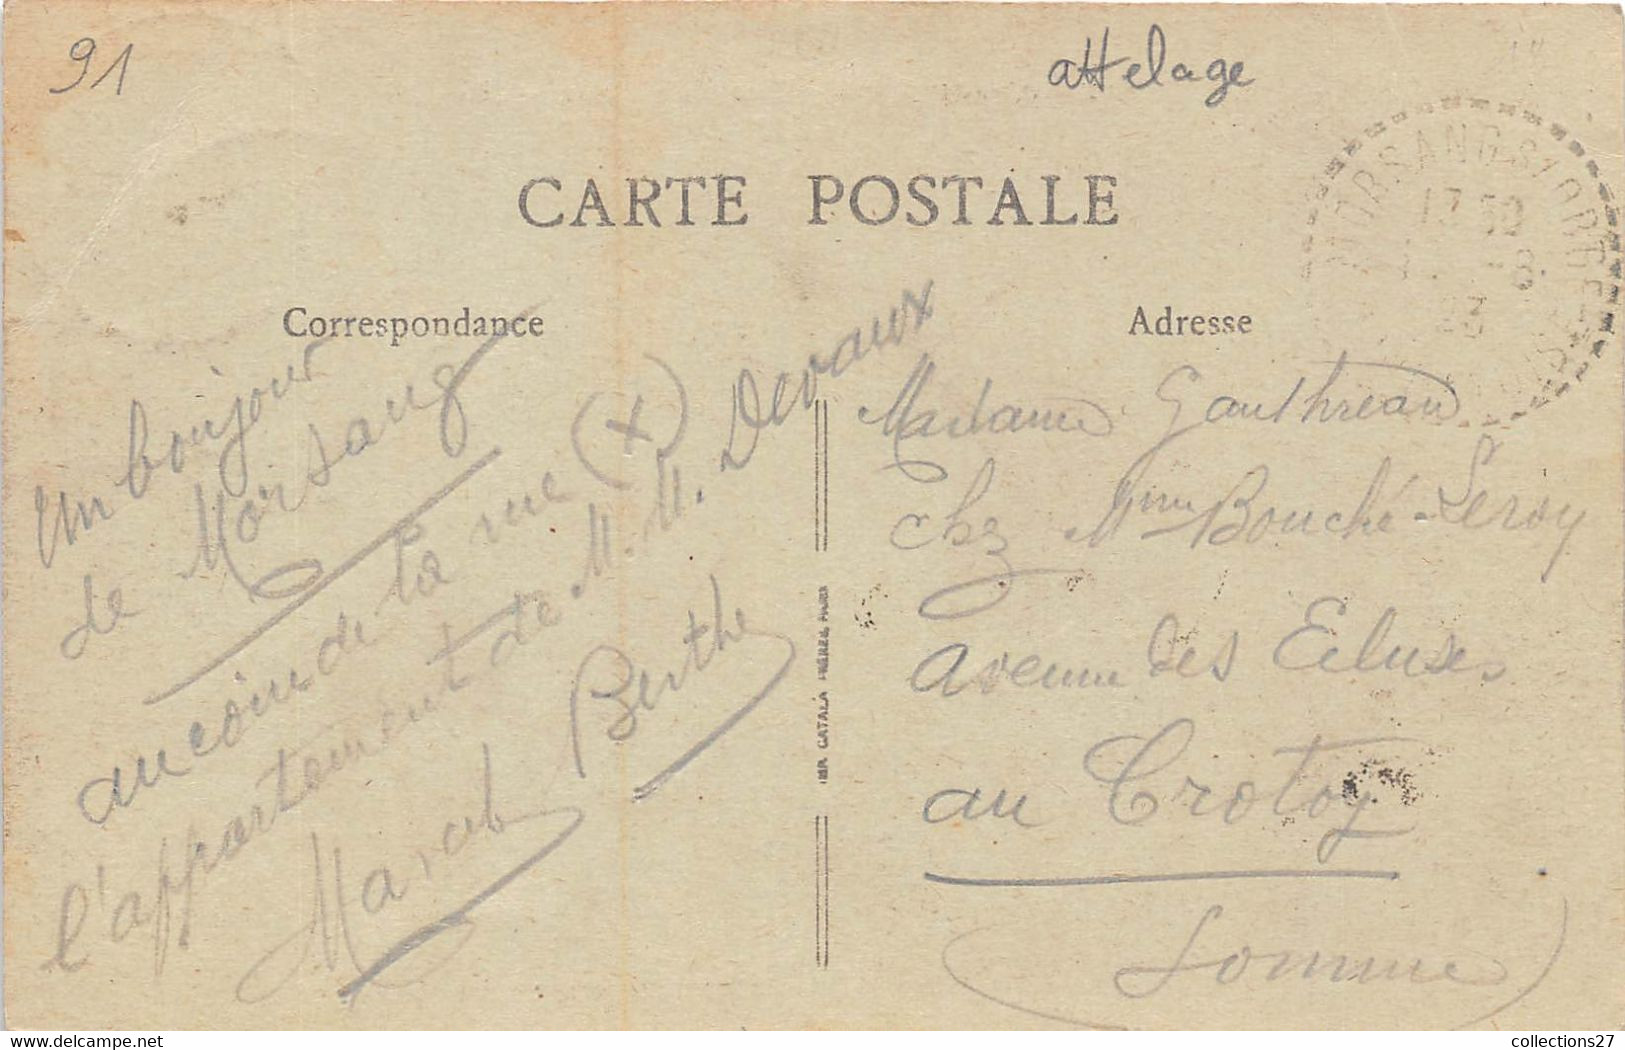 91
attelage
CARTE POSTALE
Correspondance
Adresse
MORSANG-S/ ORGE
17 50
-8
23
Un bonjour
de Morsang
au coin de la rue (x)
l'appartement de M. M. Devaux
Marcel Berthe
IMP. CATALA FRÈRES, PARIS
Madame Gauthreau
Chez Mme Bouché-Leroy
Avenue des Ecluses
au Crotoy
(Somme)
collections27